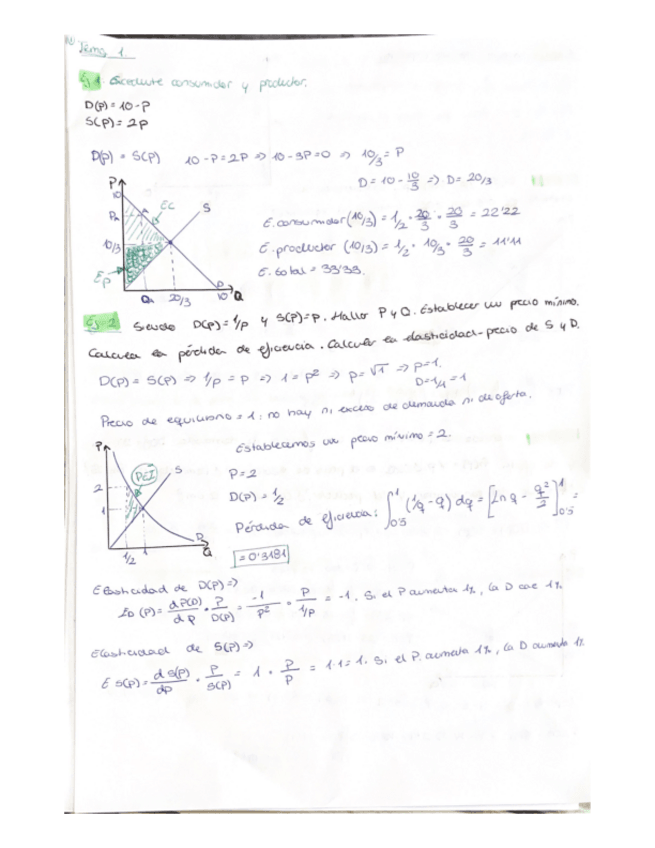 Tema 1.
Ej 1. Excedente consumidor y productor.
D(p) = 10 - P
S(p) = 2p
D(p) = S(p) 10 - P = 2P => 10 - 3P = 0 => 10/3 = P
D = 10 - 10/3 => D = 20/3
P
10
PA
A
EC
S
10/3
EP
QA
20/3
10
D
Q
E. consumidor (10/3) = 1/2 · 20/3 · 20/3 = 22'22
E. productor (10/3) = 1/2 · 10/3 · 20/3 = 11'11
E. total = 33'33.
Ej 2. Siendo D(p) = 1/p y S(p) = P. Hallar P y Q. Establecer un precio mínimo.
Calcula la pérdida de eficiencia. Calcular la elasticidad-precio de S y D.
D(p) = S(p) => 1/p = P => 1 = p² => P = √1 => P = 1.
D = 1/1 = 1
Precio de equilibrio = 1: no hay ni exceso de demanda ni de oferta.
P
2
1
S
D
Q
1/2
1
Establecemos un precio mínimo = 2.
P = 2
D(p) = 1/2
Pérdida de eficiencia: ∫₀'₅¹ (1/q - q) dq = [Ln q - q²/2]₀'₅¹ =
= 0'3181
Elasticidad de D(p) =>
ED (P) = dP(D)/dp · P/D(p) = -1/p² · P/1/p = -1. Si el P aumenta 1%, la D cae 1%
Elasticidad de S(p) =>
E S(p) = dS(p)/dp · P/S(p) = 1 · P/P = 1·1 = 1. Si el P. aumenta 1%, la D aumenta 1%